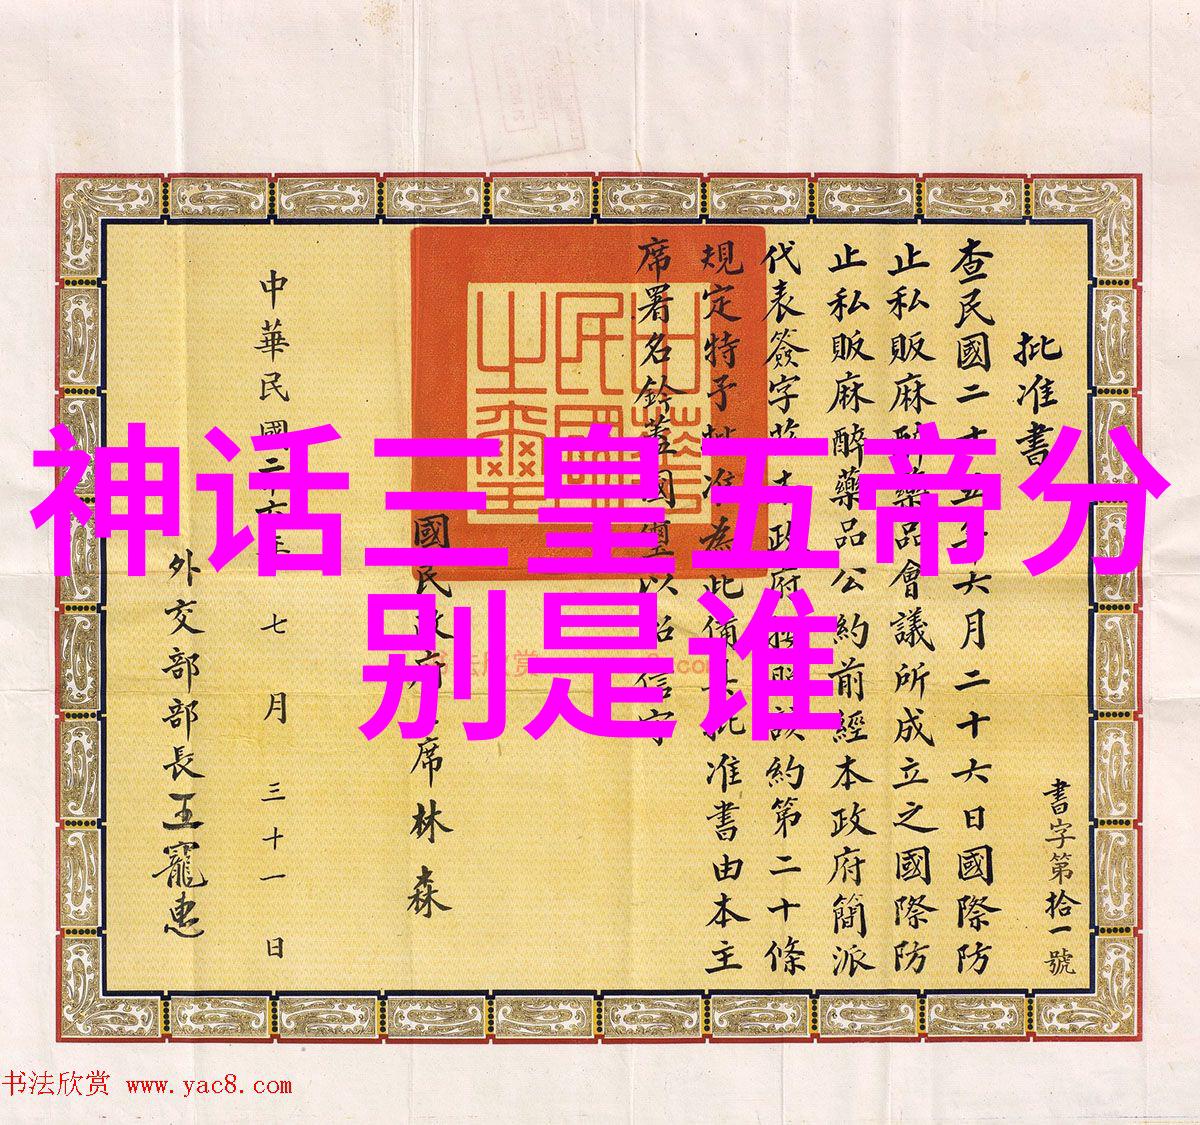 神话三皇五帝分
别是谁
書字第拾一號
批准書
查民國二十五年六月二十六日國際防
止私販麻醉藥品會議所成立之國際防
止私販麻醉藥品公約前經本政府簡派
代表簽字茲本政府按照該約第二十條
規定特予批准為此備具批准書由本主
席署名鈐蓋國璽以昭信守
中華民國之璽
國民政府主席林森
中華民國二十六年七月三十一日
外交部部長王寵惠
书法欣赏 www.yac8.com